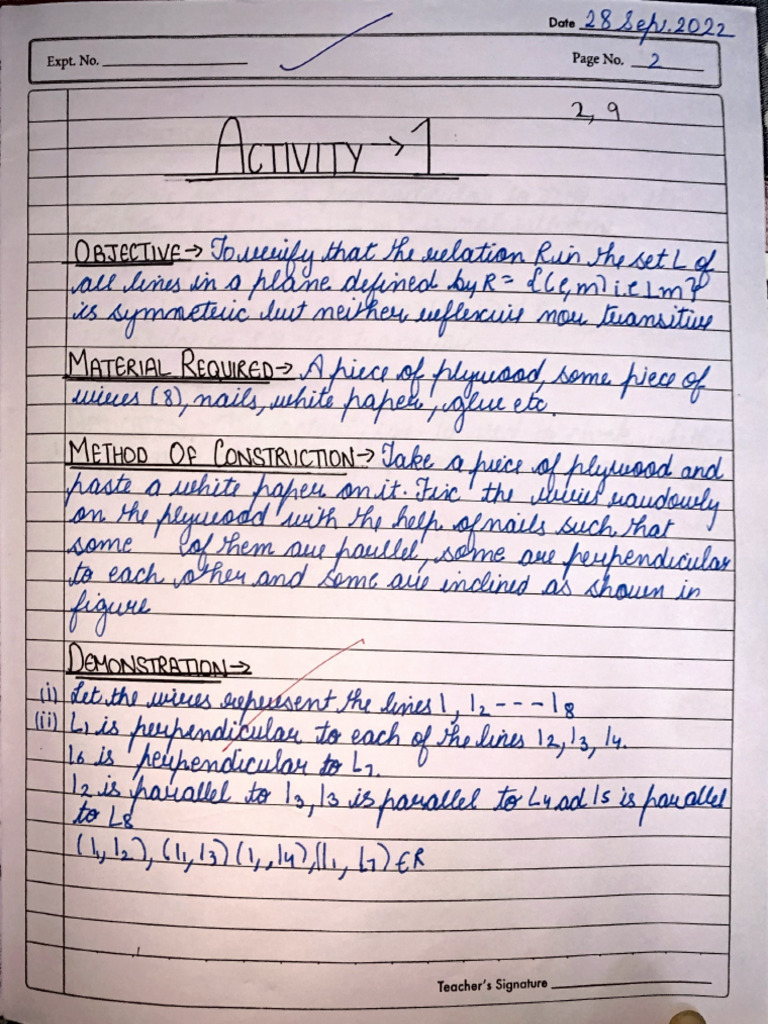 Date 28 Sep. 2022
Expt. No.
Page No. 2
2, 9
ACTIVITY → 1
OBJECTIVE → To verify that the relation R in the set L of
all lines in a plane defined by R = {(l, m) : l ⊥ m}
is symmetric but neither reflexive nor transitive
MATERIAL REQUIRED → A piece of plywood, some piece of
wires (8), nails, white paper, glue etc.
METHOD OF CONSTRUCTION → Take a piece of plywood and
paste a white paper on it. Fix the wires randouly
on the plywood with the help of nails such that
some of them are parllel, some are perpendicular
to each other and some are inclined as shown in
figure
DEMONSTRATION →
(i) Let the wires represent the lines l, l2 --- l8
(ii) L1 is perpendicular to each of the lines l2, l3, l4.
l6 is perpendicular to L7.
l2 is parallel to l3, l3 is parallel to L4 ad l5 is parallel
to L8
(l1, l2), (l1, l3) (l1, l4), (l1, L7) ∈ R
Teacher's Signature